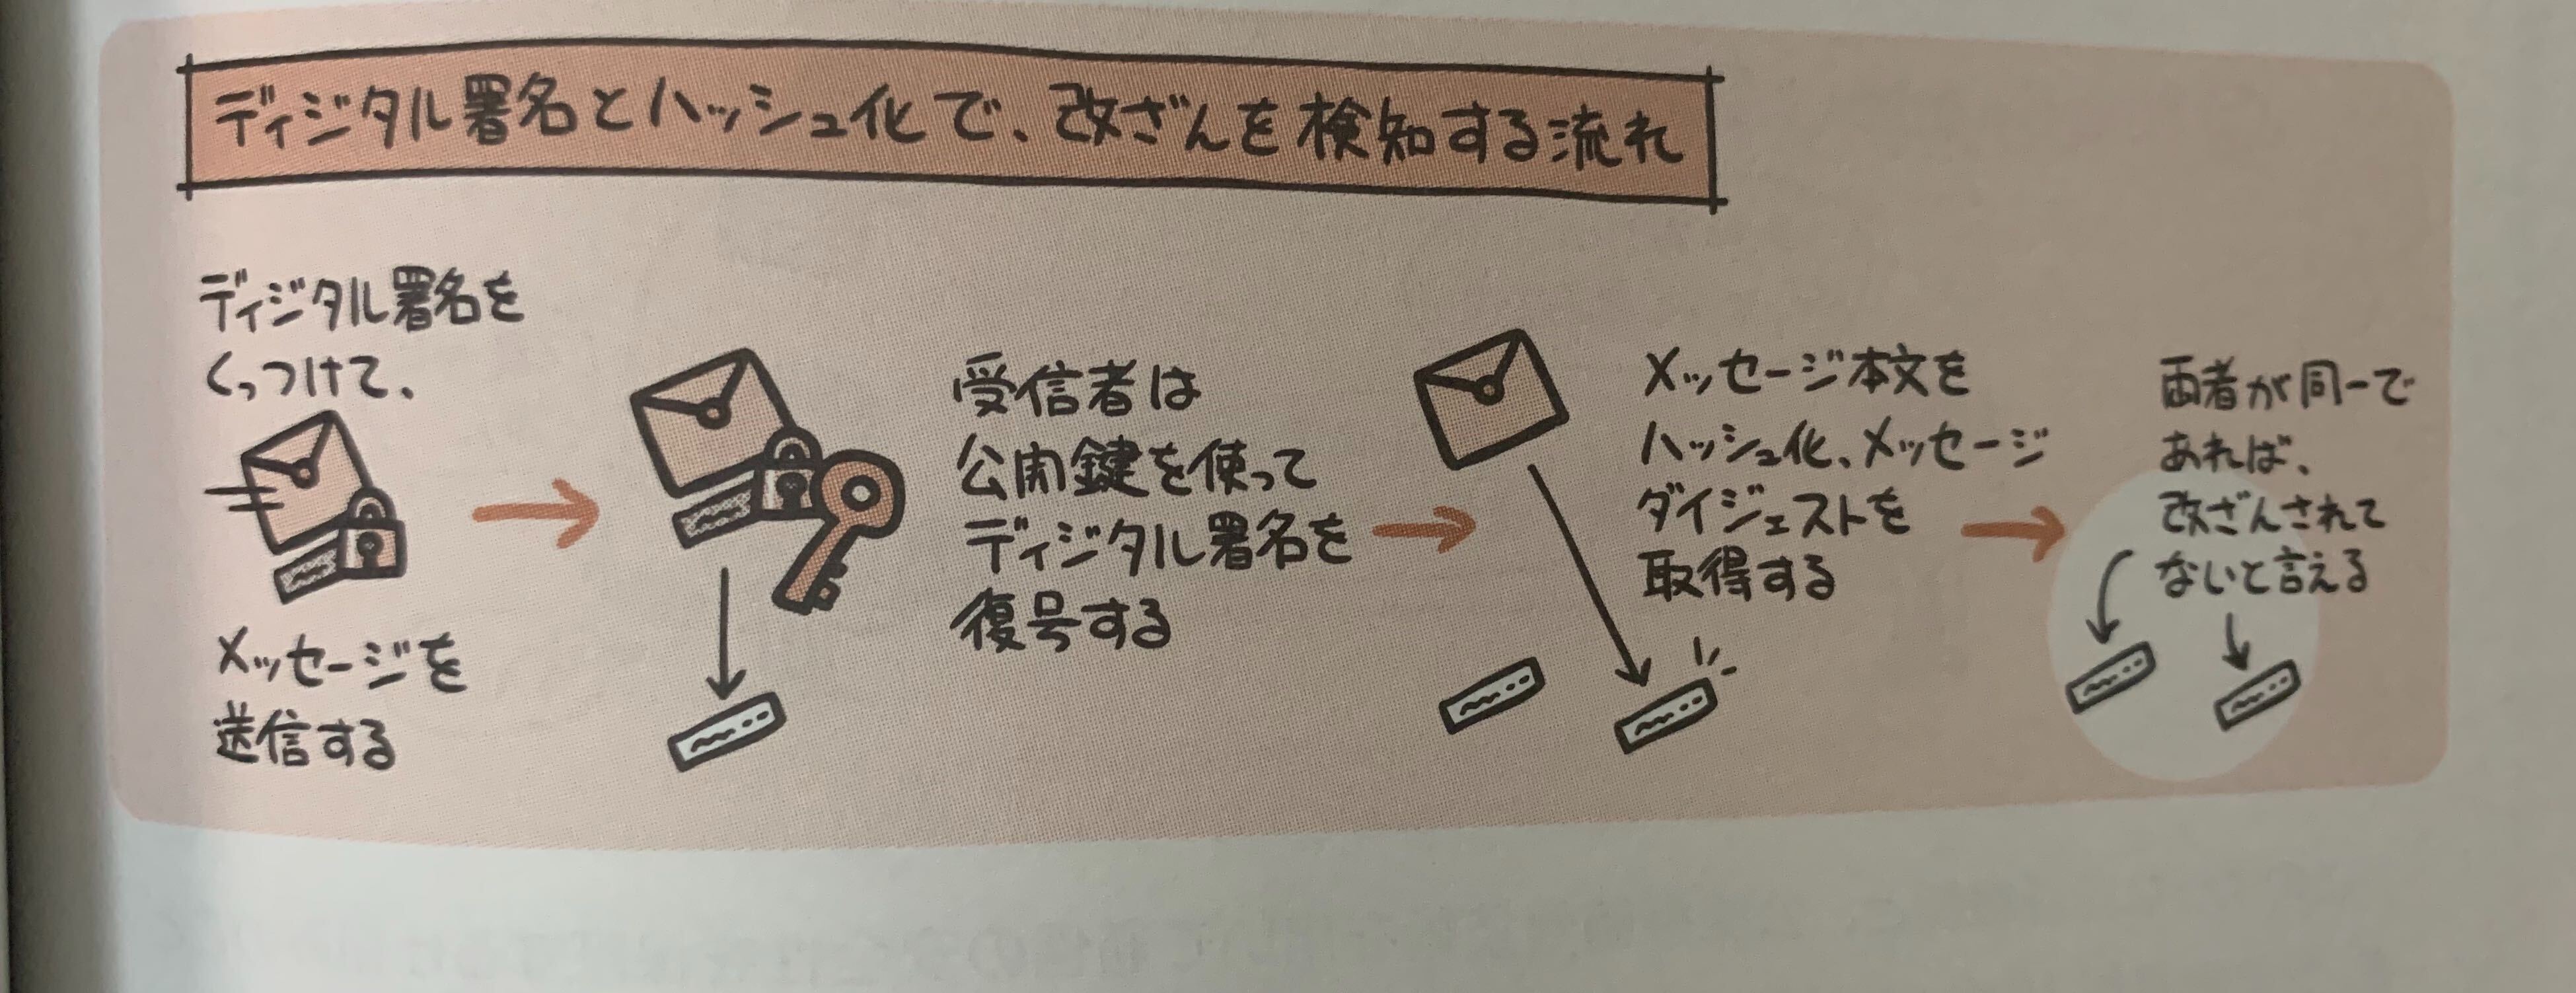 ディジタル署名とハッシュ化で、改ざんを検知する流れ
ディジタル署名を
くっつけて、
メッセージを
送信する
受信者は
公開鍵を使って
ディジタル署名を
復号する
メッセージ本文を
ハッシュ化、メッセージ
ダイジェストを
取得する
両者が同一で
あれば、
改ざんされて
ないと言える